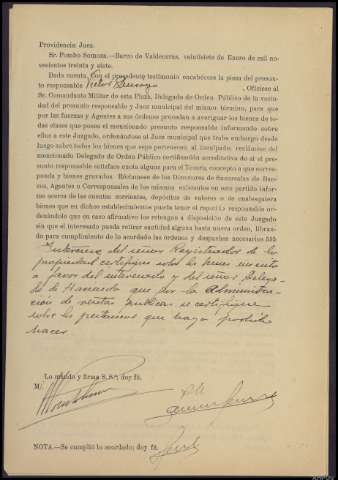 Providencia Juez.
Sr. Pombo Somoza.—Barco de Valdeorras, veintisiete de Enero de mil no-
vecientos treinta y siete.
Dada cuenta, con el precedente testimonio encabécese la pieza del presun-
to responsable Oficiese al
Sr. Comandante Militar de esta Plaza, Delegado de Orden Público de la vecin-
dad del presunto responsable y Juez municipal del mismo término, para que
por las fuerzas y Agentes a sus órdenes procedan a averiguar los bienes de to-
das clases que posea el mencionado presunto responsable informando sobre
ellos a este Juzgado, ordenándose al Juez municipal que trabe embargo desde
luego sobre todos los bienes que sepa pertenecen al inculpado, recibiendo del
mencionado Delegado de Orden Público certificación acreditativa de si el pre-
sunto responsable satisface cuota alguna para el Tesoro, concepto a que corres-
ponda y bienes gravados. Reclámese de los Directores de Sucursales de Ban-
cos, Agentes o Corresponsales de los mismos existentes en este partido infor-
mes acerca de las cuentas corrientes, depósitos de valores o de cualesquiera
bienes que en dichos establecimientos pueda tener el repetido responsable or-
denándoles que en caso afirmativo los retengan a disposición de este Juzgado
sin que el interesado pueda retirar cantidad alguna hasta nueva orden, librán-
dose para cumplimiento de lo acordado las órdenes y despachos necesarios
del señor Registrador de la
propiedad certifique sobre los bienes inscritos
a favor del interesado y del señor Delega-
do de Hacienda que por la Administra-
ción de rentas públicas se certifique
sobre los que haya
hacer
Lo mandó y firma S. Sª; doy fé.
M/
NOTA.—Se cumplió lo acordado; doy fé.